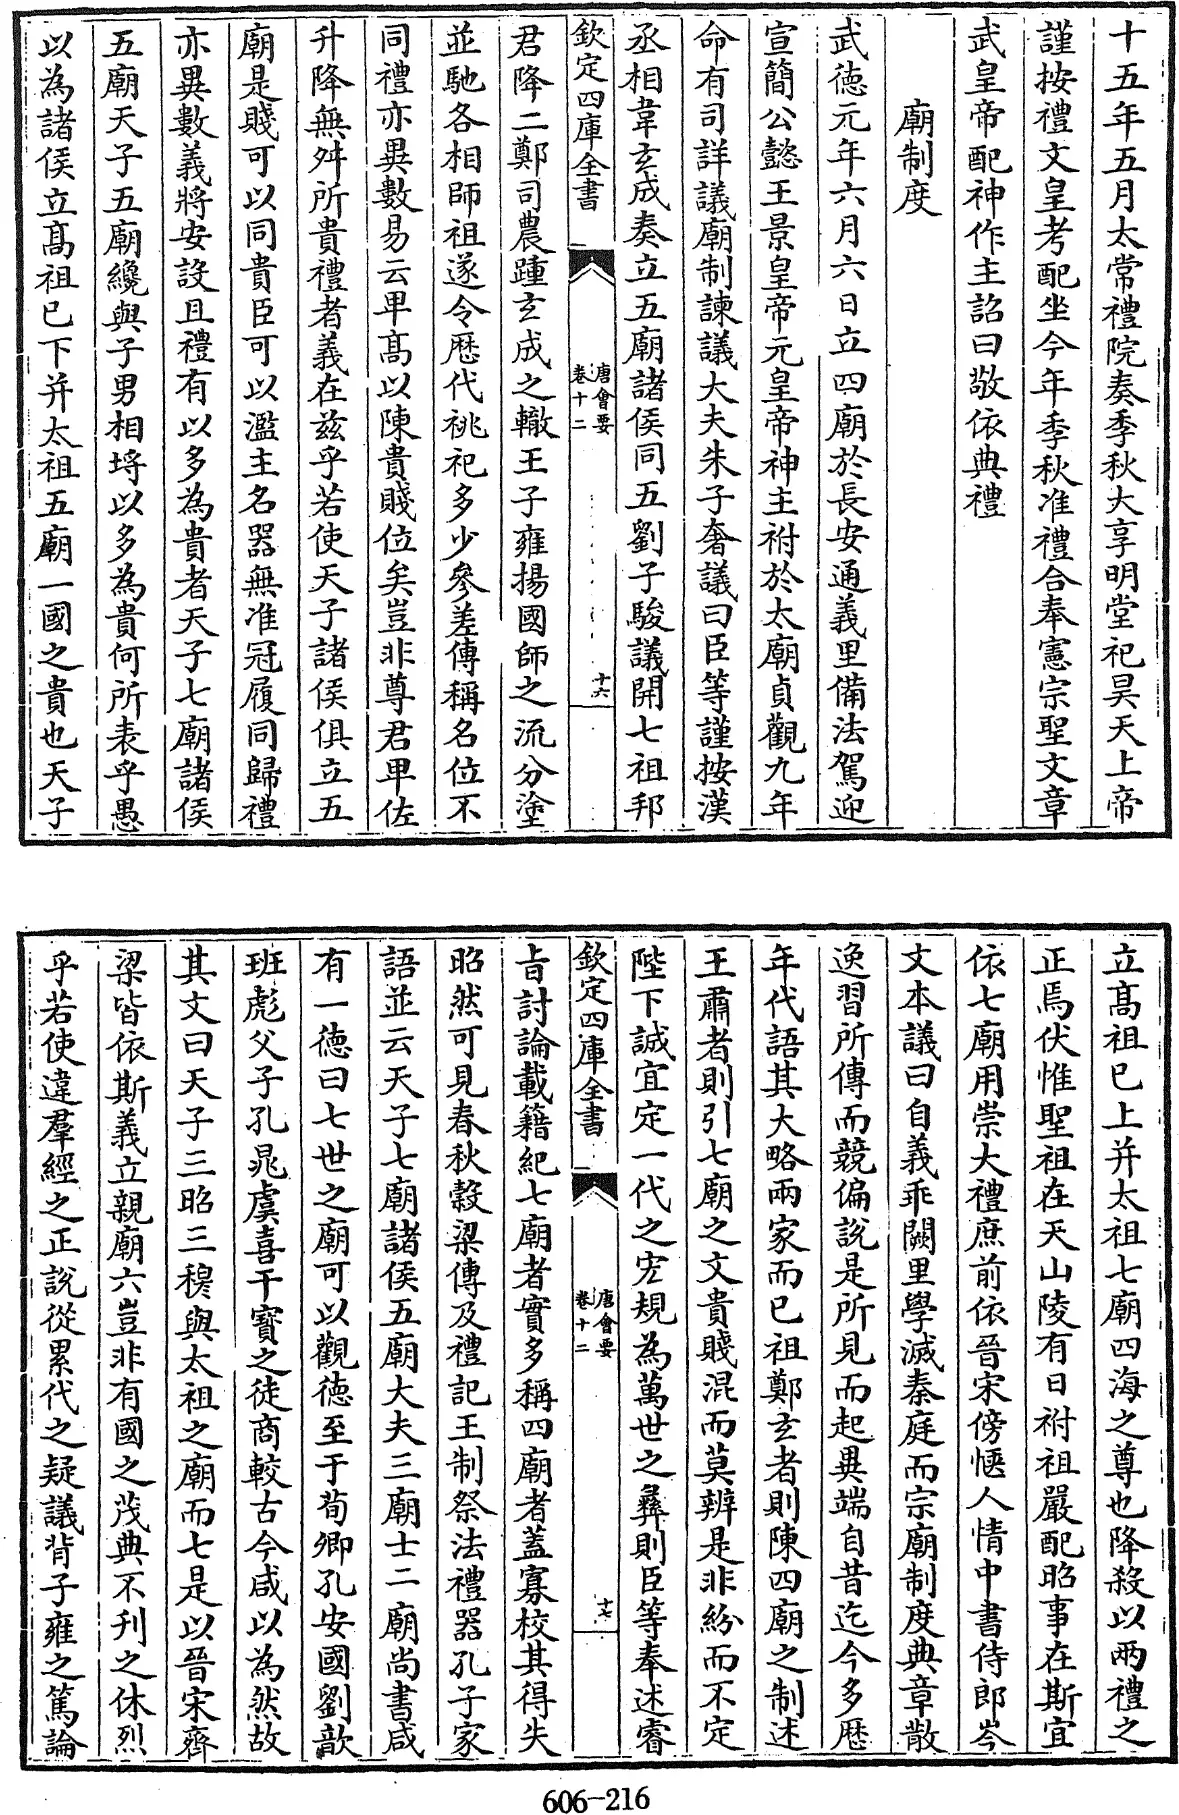 十五年五月太常禮院奏季秋大享明堂祀昊天上帝
謹按禮文皇考配坐今年季秋准禮合奉憲宗聖文章
武皇帝配神作主詔曰敬依典禮
廟制度
武徳元年六月六日立四廟於長安通義里備法駕迎
宣簡公懿王景皇帝元皇帝神主祔於太廟貞觀九年
命有司詳議廟制諫議大夫朱子奢議曰臣等謹按漢
丞相韋玄成奏立五廟諸侯同五劉子駿議開七祖邦
欽定四庫全書
唐會要
卷十二
十六
君降二鄭司農踵玄成之轍王子雍揚國師之流分塗
並馳各相師祖遂令厯代祧祀多少參差傳稱名位不
同禮亦異數易云卑髙以陳貴賤位矣豈非尊君卑佐
升降無舛所貴禮者義在兹乎若使天子諸侯俱立五
廟是賤可以同貴臣可以濫主名器無准冠履同歸禮
亦異數義將安設且禮有以多為貴者天子七廟諸侯
五廟天子五廟纔與子男相埒以多為貴何所表乎愚
以為諸侯立髙祖已下并太祖五廟一國之貴也天子
立髙祖已上并太祖七廟四海之尊也降殺以兩禮之
正焉伏惟聖祖在天山陵有日祔祖嚴配昭事在斯宜
依七廟用崇大禮庶前依晉宋傍愜人情中書侍郎岑
文本議曰自義乖闕里學滅秦庭而宗廟制度典章散
逸習所傳而競偏說是所見而起異端自昔迄今多厯
年代語其大略兩家而已祖鄭玄者則陳四廟之制述
王肅者則引七廟之文貴賤混而莫辨是非紛而不定
陛下誠宜定一代之宏規為萬世之彝則臣等奉述睿
欽定四庫全書
唐會要
卷十二
十七
旨討論載籍紀七廟者實多稱四廟者蓋寡校其得失
昭然可見春秋榖梁傳及禮記王制祭法禮器孔子家
語並云天子七廟諸侯五廟大夫三廟士二廟尚書咸
有一徳曰七世之廟可以觀徳至于荀卿孔安國劉歆
班彪父子孔晁虞喜干寶之徒商較古今咸以為然故
其文曰天子三昭三穆與太祖之廟而七是以晉宋齊
梁皆依斯義立親廟六豈非有國之茂典不刊之休烈
乎若使違羣經之正說從累代之疑議背子雍之篤論
606-216